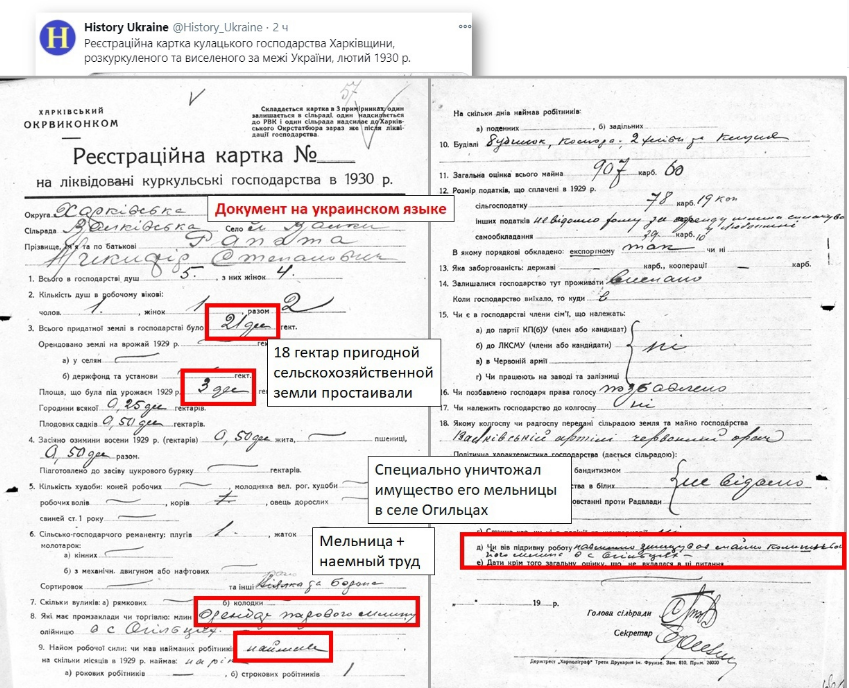 History Ukraine @History_Ukraine · 2 ч
Реєстраційна картка кулацького господарства Харківщини,
розкуркуленого та виселеного за межі України, лютий 1930 р.
57
ХАРКІВСЬКИЙ
ОКРВИКОНКОМ
Складається картка в 3 примірниках, один
залишається в сільраді, один надсилається
до РВК і один сільрада надсилає до Харків-
ського Окрстатбюра зараз же після лікві-
дації господарства.
Реєстраційна картка №
на ліквідовані куркульські господарства в 1930 р.
Округа Харківська
Документ на украинском языке
Сільрада Валківська Село Валки
Прізвище, ім'я та по батькові
Никифір Степанович
1. Всього в господарстві душ 5, з них жінок 4.
2. Кількість душ в робочому вікові:
чолов. 1, жінок 1, разом 2
3. Всього придатної землі в господарстві було 21 дес гект.
Орендовано землі на врожай 1929 р.
а) у селян
18 гектар пригодной
сельскохозяйственной
земли простаивали
б) держфонд та установи гект.
Площа, що була під урожаєм 1929 р. 3 дес
Городини всякої 0,25 дес гектарів.
Плодових садків 0,50 дес гектарів.
4. Засіяно озимини восени 1929 р. (гектарів) 0,50 дес жита, пшениці,
0,50 разом.
Підготовлено до засіву цукрового буряку гектарів.
5. Кількість худоби: коней робочих, молодняка вел. рог. худоби
робочих волів, корів, овець дорослих
свиней ст. 1 року
6. Сільсько-господарського реманенту: плугів 1, жаток
молотарок:
а) кінних
Мельница +
наемный труд
б) з механічн. двигуном або нафтових
Сортировок та інші Віялка та борона
7. Скільки вуликів: а) рямкових б) колодки
8. Які має промзаклади чи торгівлю: млин Оренда парового млина
олійницю в с Огільцях
9. Найом робочої сили: чи мав найманих робітників наймав
на скільки місяців в 1929 р. наймав:
а) рокових робітників б) строкових робітників 1
На скільки днів наймав робітників:
а) поденних, б) задільних
10. Будівлі Будинок, Комора, 2 хліви та Клуня
11. Загальна оцінка всього майна 907 карб. 60
12. Розмір податків, що сплачені в 1929 р.
сільгоспподатку 78 карб. 19 коп
інших податків невідомо
самообкладання 39 карб. 10
В якому порядкові обкладено: експортному так чи ні
13. Яка заборгованість: державі карб., кооперації
14. Залишалися господарство тут проживати Вислано
Коли господарство виїхало, то куди
15. Чи є в господарстві члени сім'ї, що належать:
а) до партії КП(б)У (член або кандидат)
б) до ЛКСМУ (член або кандидат)
в) в Червоній армії
г) Чи працюють на заводі та залізниці
ні
16. Чи позбавлено господаря права голосу позбавлено
17. Чи належить господарство до колгоспу ні
18. Якому колгоспу чи радгоспу передала сільрада землю та майно господарства
Валківській артілі червоний
Політична характеристика господарства (дається сільрадою):
бандитизмом
в білих
повстанні проти Радвлади
не відомо
Специально уничтожал
имущество его мельницы
в селе Огильцах
д) Чи вів підривну роботу навмисно знищував майно
в с Огільцях
е) Дати крім того загальну оцінку, що не вклалася в ці питання
19 р.
Голова сільради
Секретар